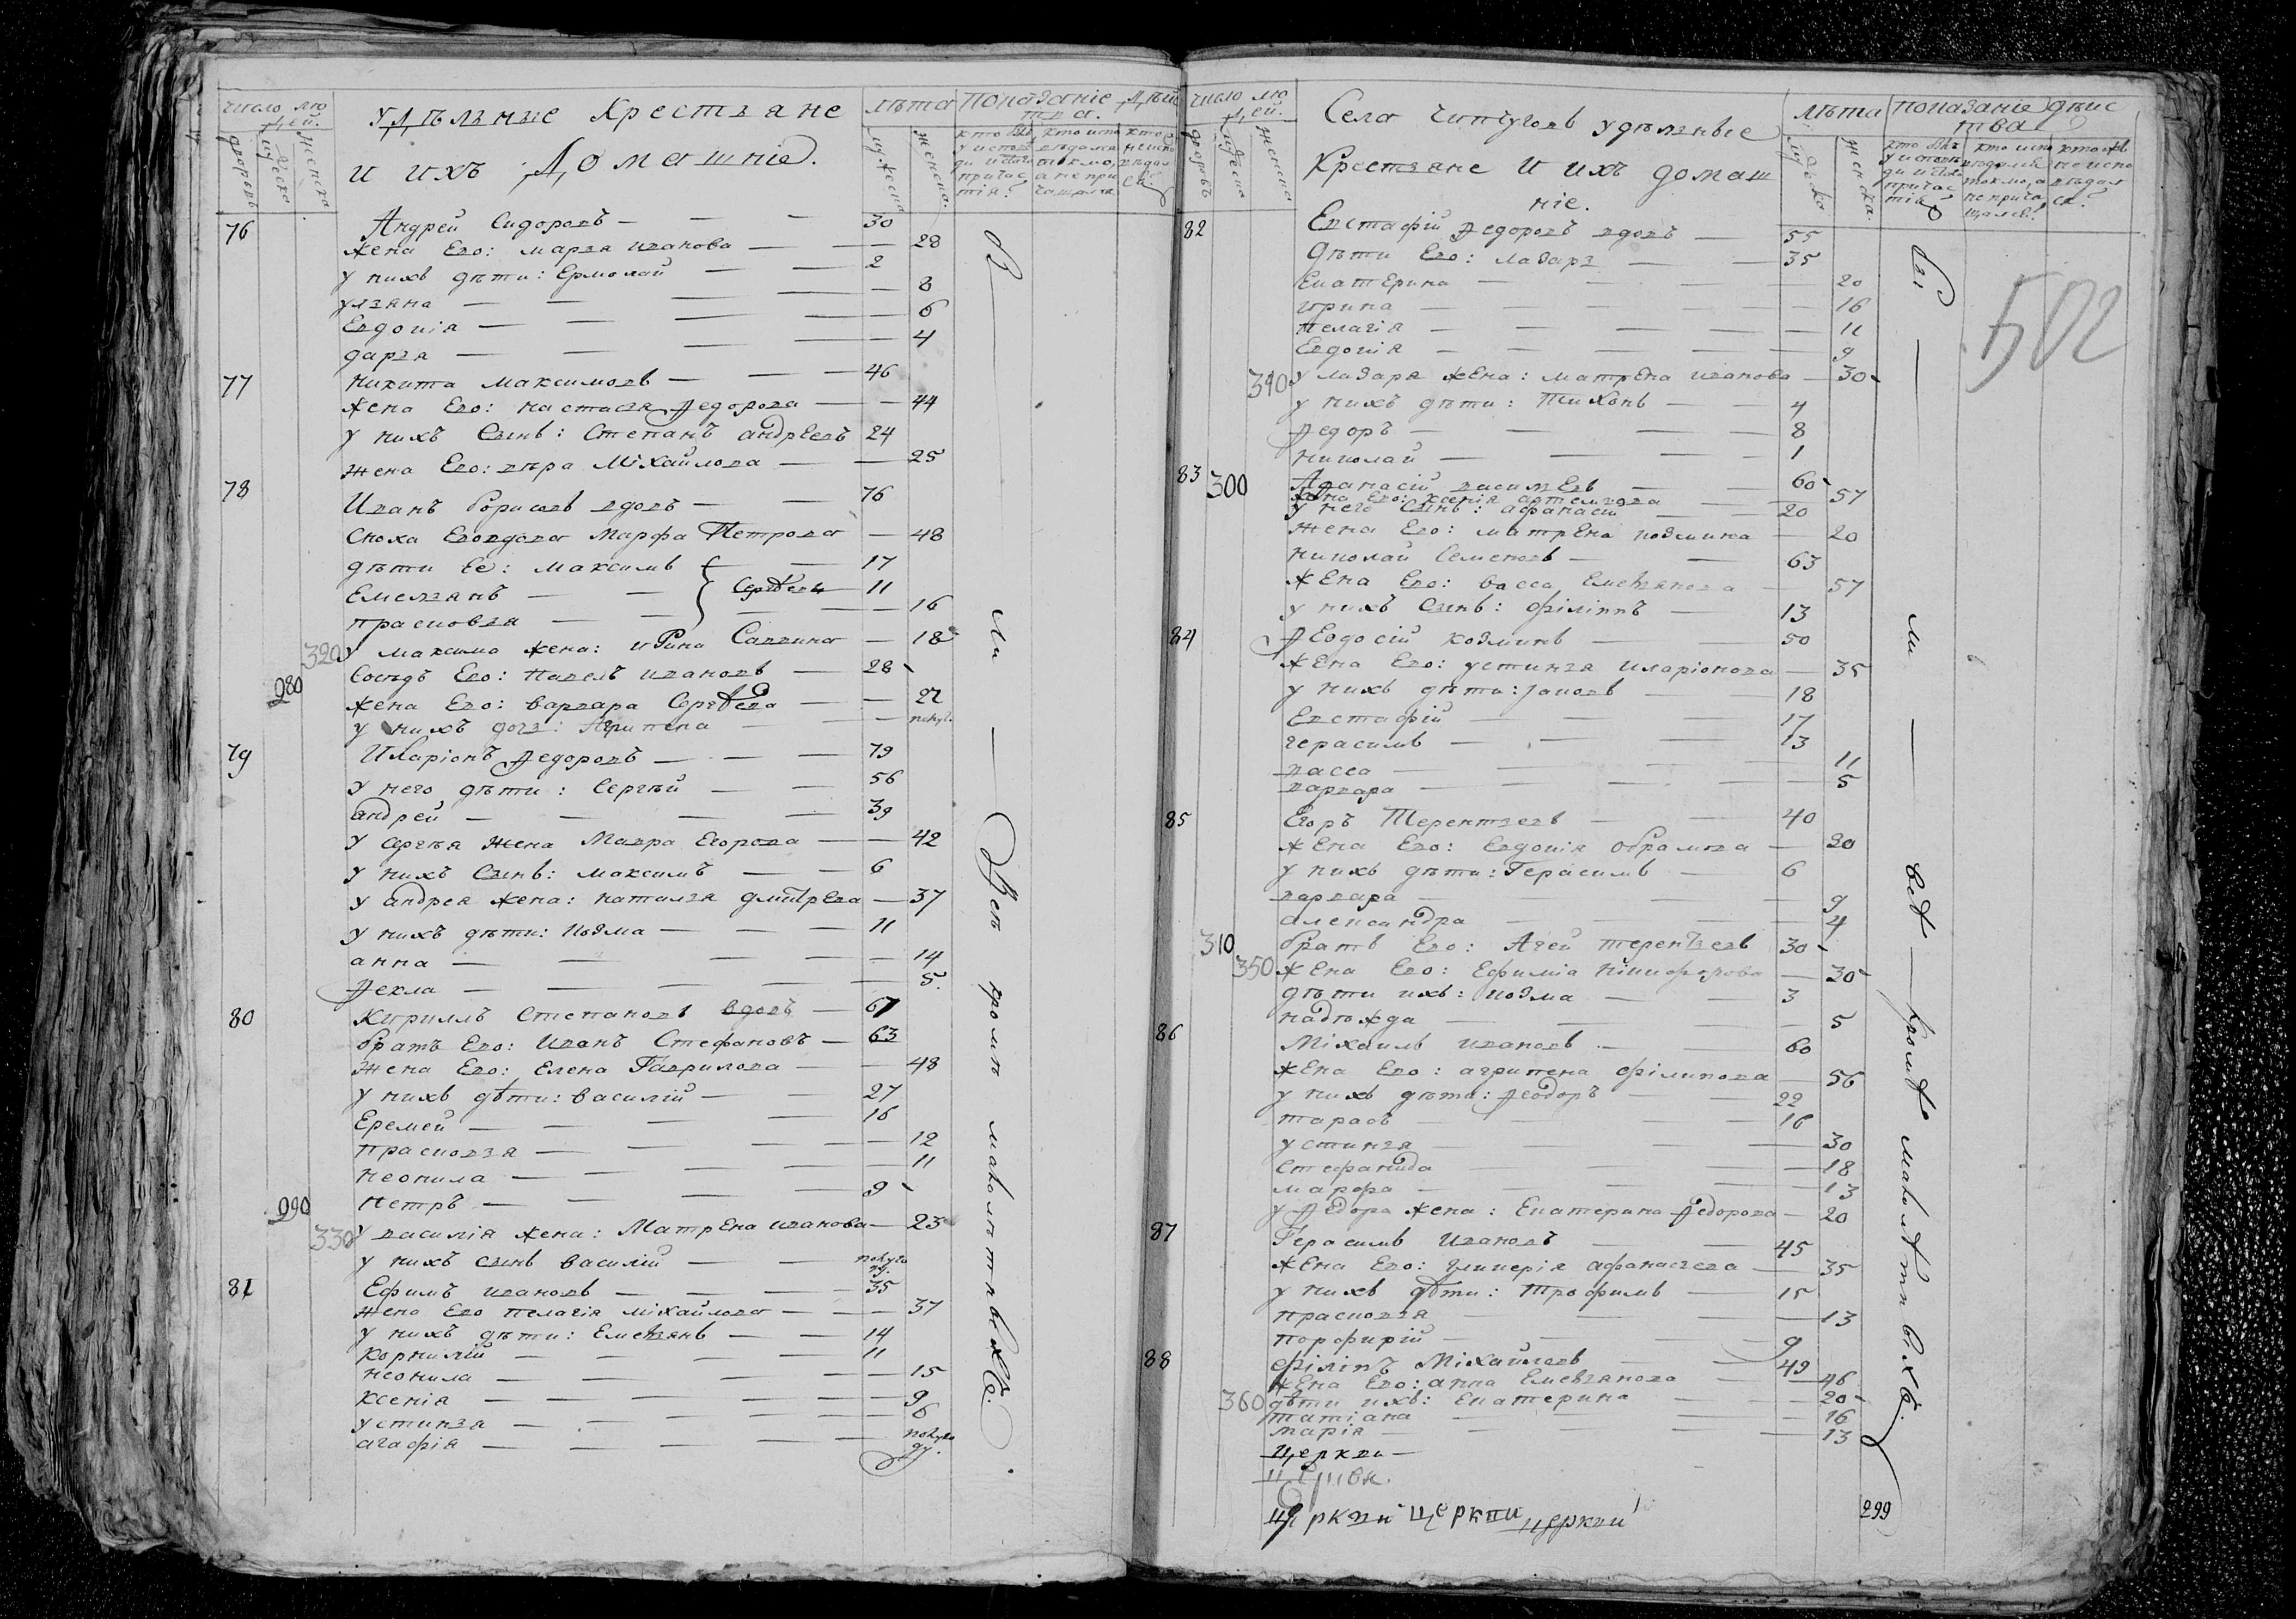 число лю
дей.
дворовъ
мужеска
женска
удѣльные крестьяне
и ихъ Домашніе.
лѣта
мужеска
женска.
показаніе дѣйс
тва.
76 Андрей Сидоровъ — 30
жена Его: марья иванова — 28
у нихъ дѣти: Ермолай — 2
ульяна — 8
Евдокія — 6
дарья — 4
77 никита максимовъ — 46
жена Его: настасья Федорова — 44
у нихъ сынъ: Степанъ андреевъ 24
жена Его: вѣра Міхайлова — 25
78 Иванъ борисовъ вдовъ — 76
сноха Его вдова Марфа Петрова — 48
дѣти Ее: максимъ — 17
Емельянъ — Сергѣевы 11
прасковья — 16
320 у максима жена: ирина Саввина — 18
Сосѣдъ Его: павелъ ивановъ — 28
280 жена Его: варвара Сергѣева — 22
у нихъ дочь: Агрипена — полуг.
79 Иларіонъ Федоровъ — 79
у него дѣти: Сергѣй — 56
андрей — 39
у сергѣя жена Мавра Егорова — 42
у нихъ сынъ: максимъ — 6
у андрея жена: наталья дмитрева — 37
у нихъ дѣти: козма — 11
анна — 14
Фекла — 5.
80 Кириллъ Степановъ вдовъ — 67
братъ Его: Иванъ Стефановъ — 63
жена Его: Елена Гаврилова — 48
у нихъ дѣти: василій — 27
Еремей — 16
прасковья — 12
неонила — 11
петръ — 9
290
330 у василія жена: Матрена иванова — 23
у нихъ сынъ василій — полуго
ду.
81 Ефимъ ивановъ — 35
жена Его пелагія міхайлова — 37
у нихъ дѣти: Емельянъ — 14
корнилій — 11
неонила — 15
ксенія — 9
устинья — 6
агафія — полуго
ду.
Бы — ли — Всѣ кромѣ малолѣтныхъ.
число лю
дей.
дворовъ
мужеска
женска
Села Чипуговъ удѣльные
Крестьяне и ихъ домаш
ніе.
лѣта
женска.
показаніе дѣйс
тва
82 Евстафій Федоровъ вдовъ — 55
дѣти Его: лазарь — 35
Екатерина — 20
ирина — 16
пелагія — 11
Евдокія — 9
340 у лазаря жена: матрена иванова — 30
у нихъ дѣти: Тихонъ — 4
Федоръ — 8
николай — 1
83 300 Афанасій васильевъ — 60
жена Его: ксенія артемьева — 57
у него сынъ: афанасій — 20
жена Его: матрена козмина — 20
николай Семеновъ — 63
жена Его: васса Емельянова — 57
у нихъ сынъ: філіппъ — 13
84 Феодосій козминъ — 50
жена Его: устинья иларіонова — 35
у нихъ дѣти: іаковъ — 18
Евстафій — 17
герасимъ — 13
васса — 11
варвара — 5
85 Егоръ Терентьевъ — 40
жена Его: Евдокія абрамова — 20
у нихъ дѣти: Герасимъ — 6
варвара — 9
александра — 4
310 братъ Его: Агей терентьевъ 30
350 жена Его: Ефимія нікифорова — 30
дѣти ихъ: козма — 3
надежда — 5
86 Міхаилъ ивановъ — 60
жена Его: агрипена філипова — 56
у нихъ дѣти: Феодоръ — 22
тарасъ — 16
устинья — 30
стефанида — 18
марфа — 13
у Федора жена: Екатерина Федорова — 20
87 Герасимъ Ивановъ — 45
жена Его: гликерія афанасьева — 35
у нихъ дѣти: трофимъ — 15
прасковья — 13
порфирій — 9
88 філіпъ Міхайловъ — 49
жена Его: анна Емельянова — 46
360 дѣти ихъ: Екатерина — 20
татіана — 16
марія — 13
церкви —
церкви церкви церкви
Бы — ли — всѣ — кромѣ малолѣтныхъ.
502
299